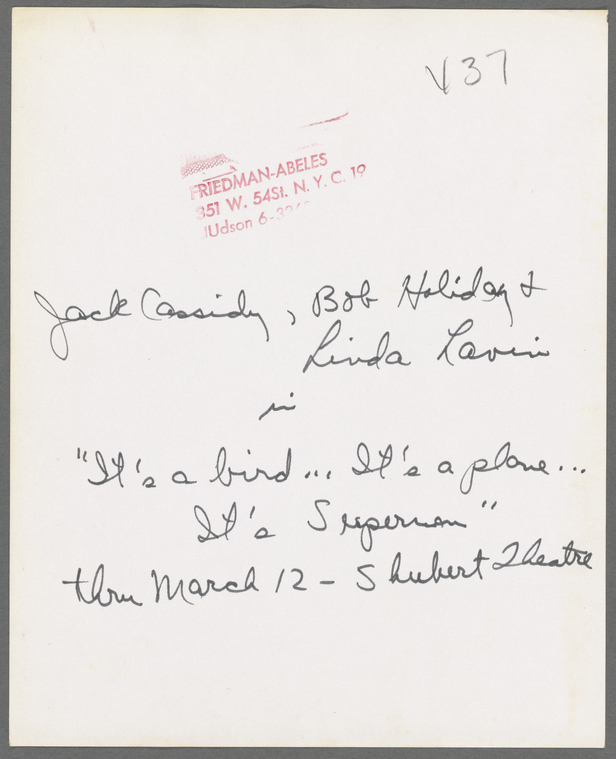 V37
FRIEDMAN-ABELES
351 W. 54St. N. Y. C. 19
JUdson 6-
Jack Cassidy, Bob Holiday &
Linda Lavin
in
"It's a bird... It's a plane...
It's Superman"
thru March 12 - Shubert Theatre